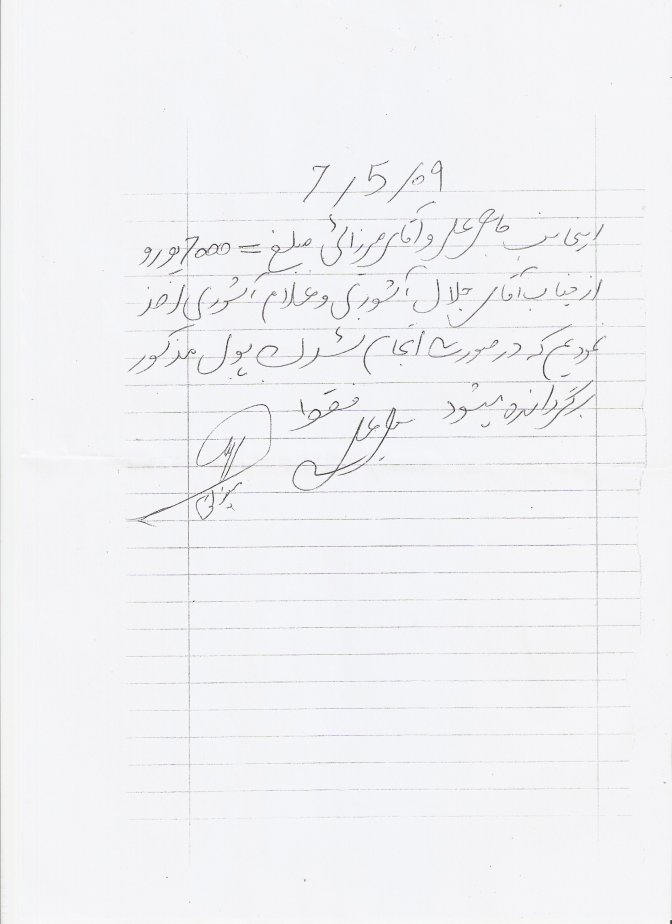 7/5/09
اینجانب حاج علی و آقای میرزائی مبلغ = 7000 یورو
از جناب آقای جلال آشوری و غلام آشوری اخذ
نمودیم که در صورت انجام نشدن پول مذکور
برگردانده میشود فقط
حاج علی